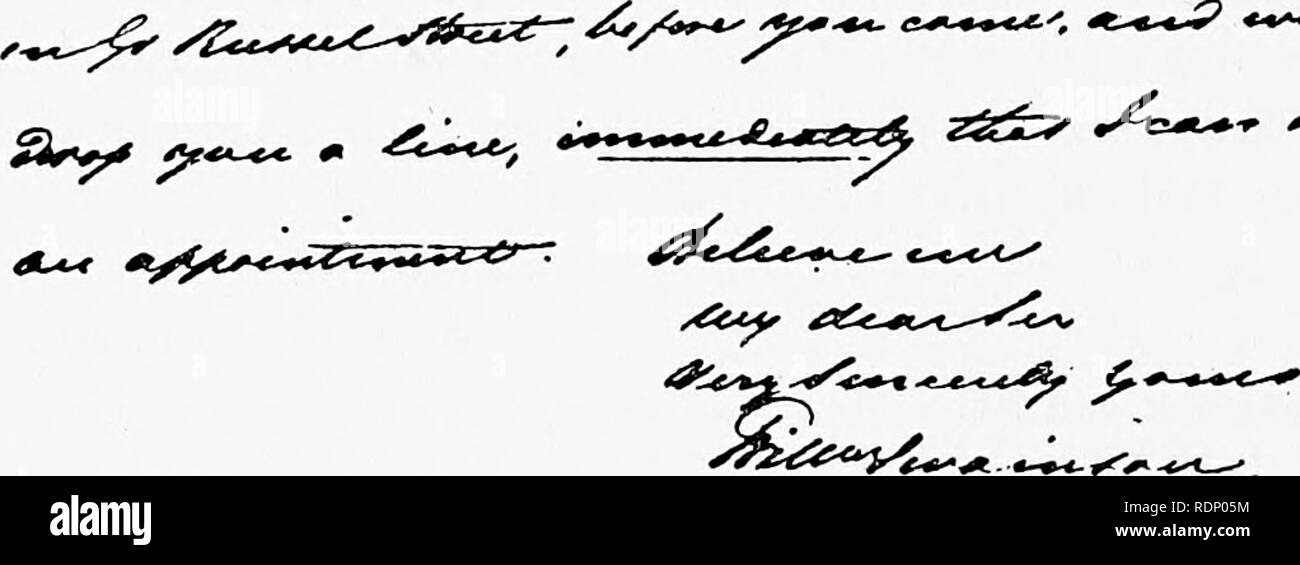 in Gt Russel Street, before you come, and
drop you a line, immediately that I can
an appointment. Believe me
My dear Sir
Very Sincerely Yours
Willm Swainson
alamy
Image ID: RDP05M
www.alamy.com